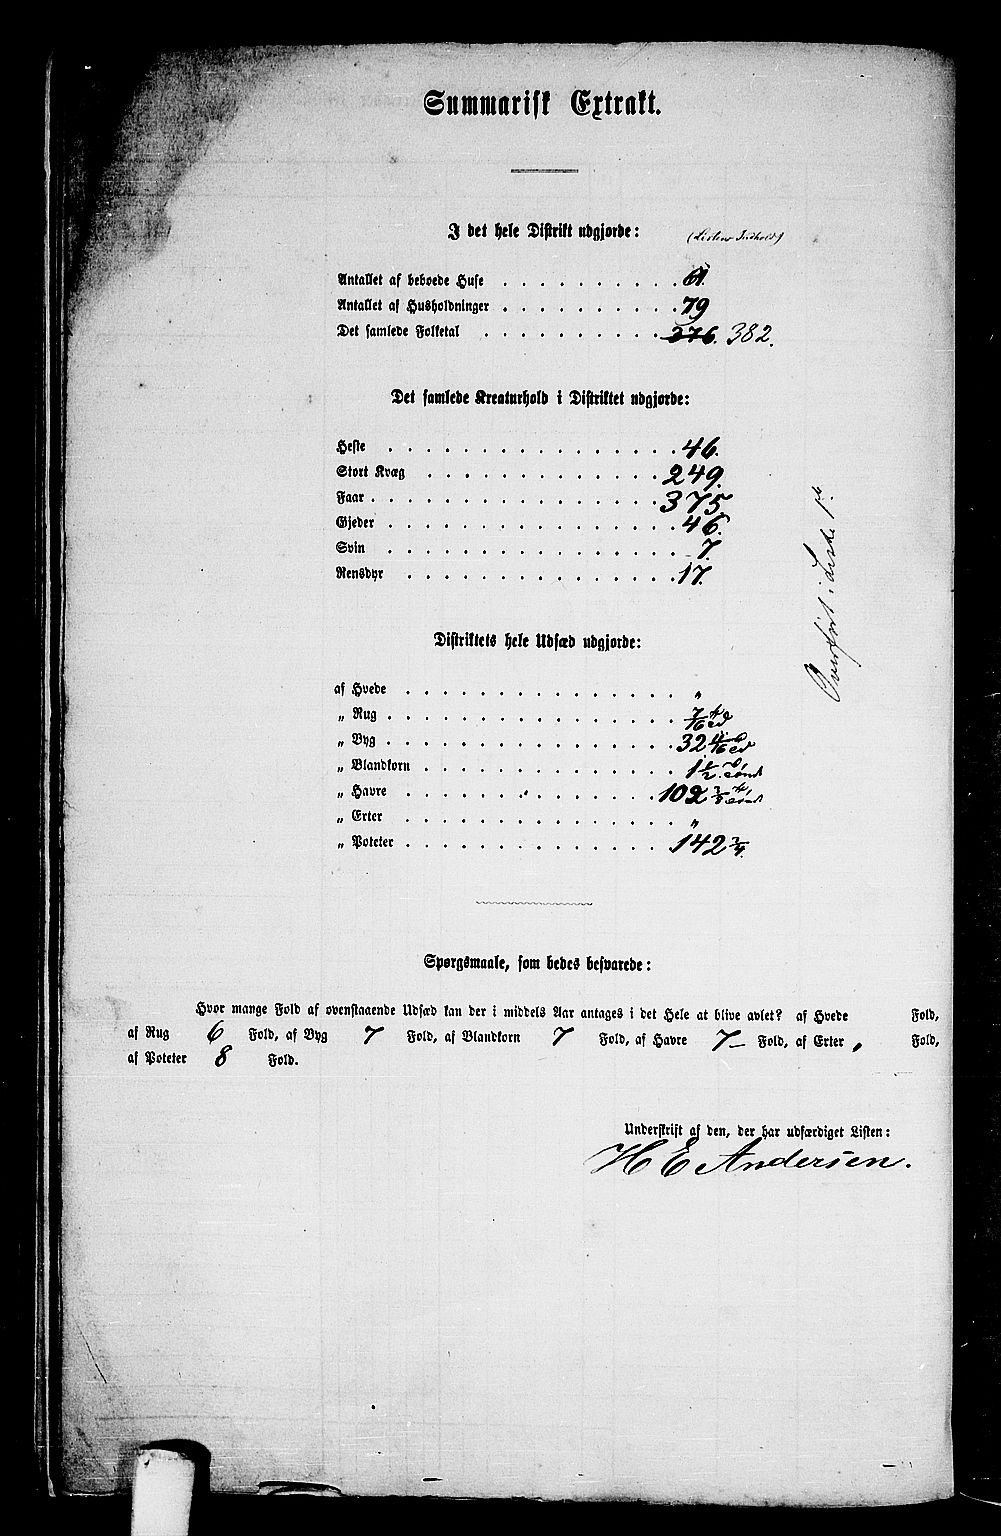 Summarisk Extrakt.
I det hele Distrikt udgjorde:
(Listens Indhold)
Antallet af beboede Huse . . . . . . . . . . 61.
Antallet af Husholdninger . . . . . . . . . . 79
Det samlede Folketal . . . . . . . . . . 376. 382.
Det samlede Kreaturhold i Distriktet udgjorde:
Heste . . . . . . . . . . 46.
Stort Kvæg . . . . . . . . . . 249.
Faar . . . . . . . . . . 375.
Gjeder . . . . . . . . . . 46.
Svin . . . . . . . . . . 7.
Rensdyr . . . . . . . . . . 17.
Overført i Liste
Distriktets hele Udsæd udgjorde:
af Hvede . . . . . . . . . . "
" Rug . . . . . . . . . . 7/16
" Byg . . . . . . . . . . 32
" Blandkorn . . . . . . . . . . 1 1/2
" Havre . . . . . . . . . . 102
" Erter . . . . . . . . . . "
" Poteter . . . . . . . . . . 142
Spørgsmaale, som bedes besvarede:
Hvor mange Fold af ovenstaaende Udsæd kan der i middels Aar antages i det Hele at blive avlet? af Hvede Fold,
af Rug 6 Fold, af Byg 7 Fold, af Blandkorn 7 Fold, af Havre 7 – Fold, af Erter , Fold,
af Poteter 8 Fold.
Underskrift af den, der har udfærdiget Listen:
H E Andersen.